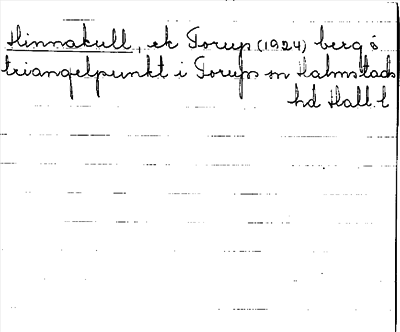 Hinnakull, ek Torup (1924) berg o
triangelpunkt i Torups sn Halmstads
hd Hall. l